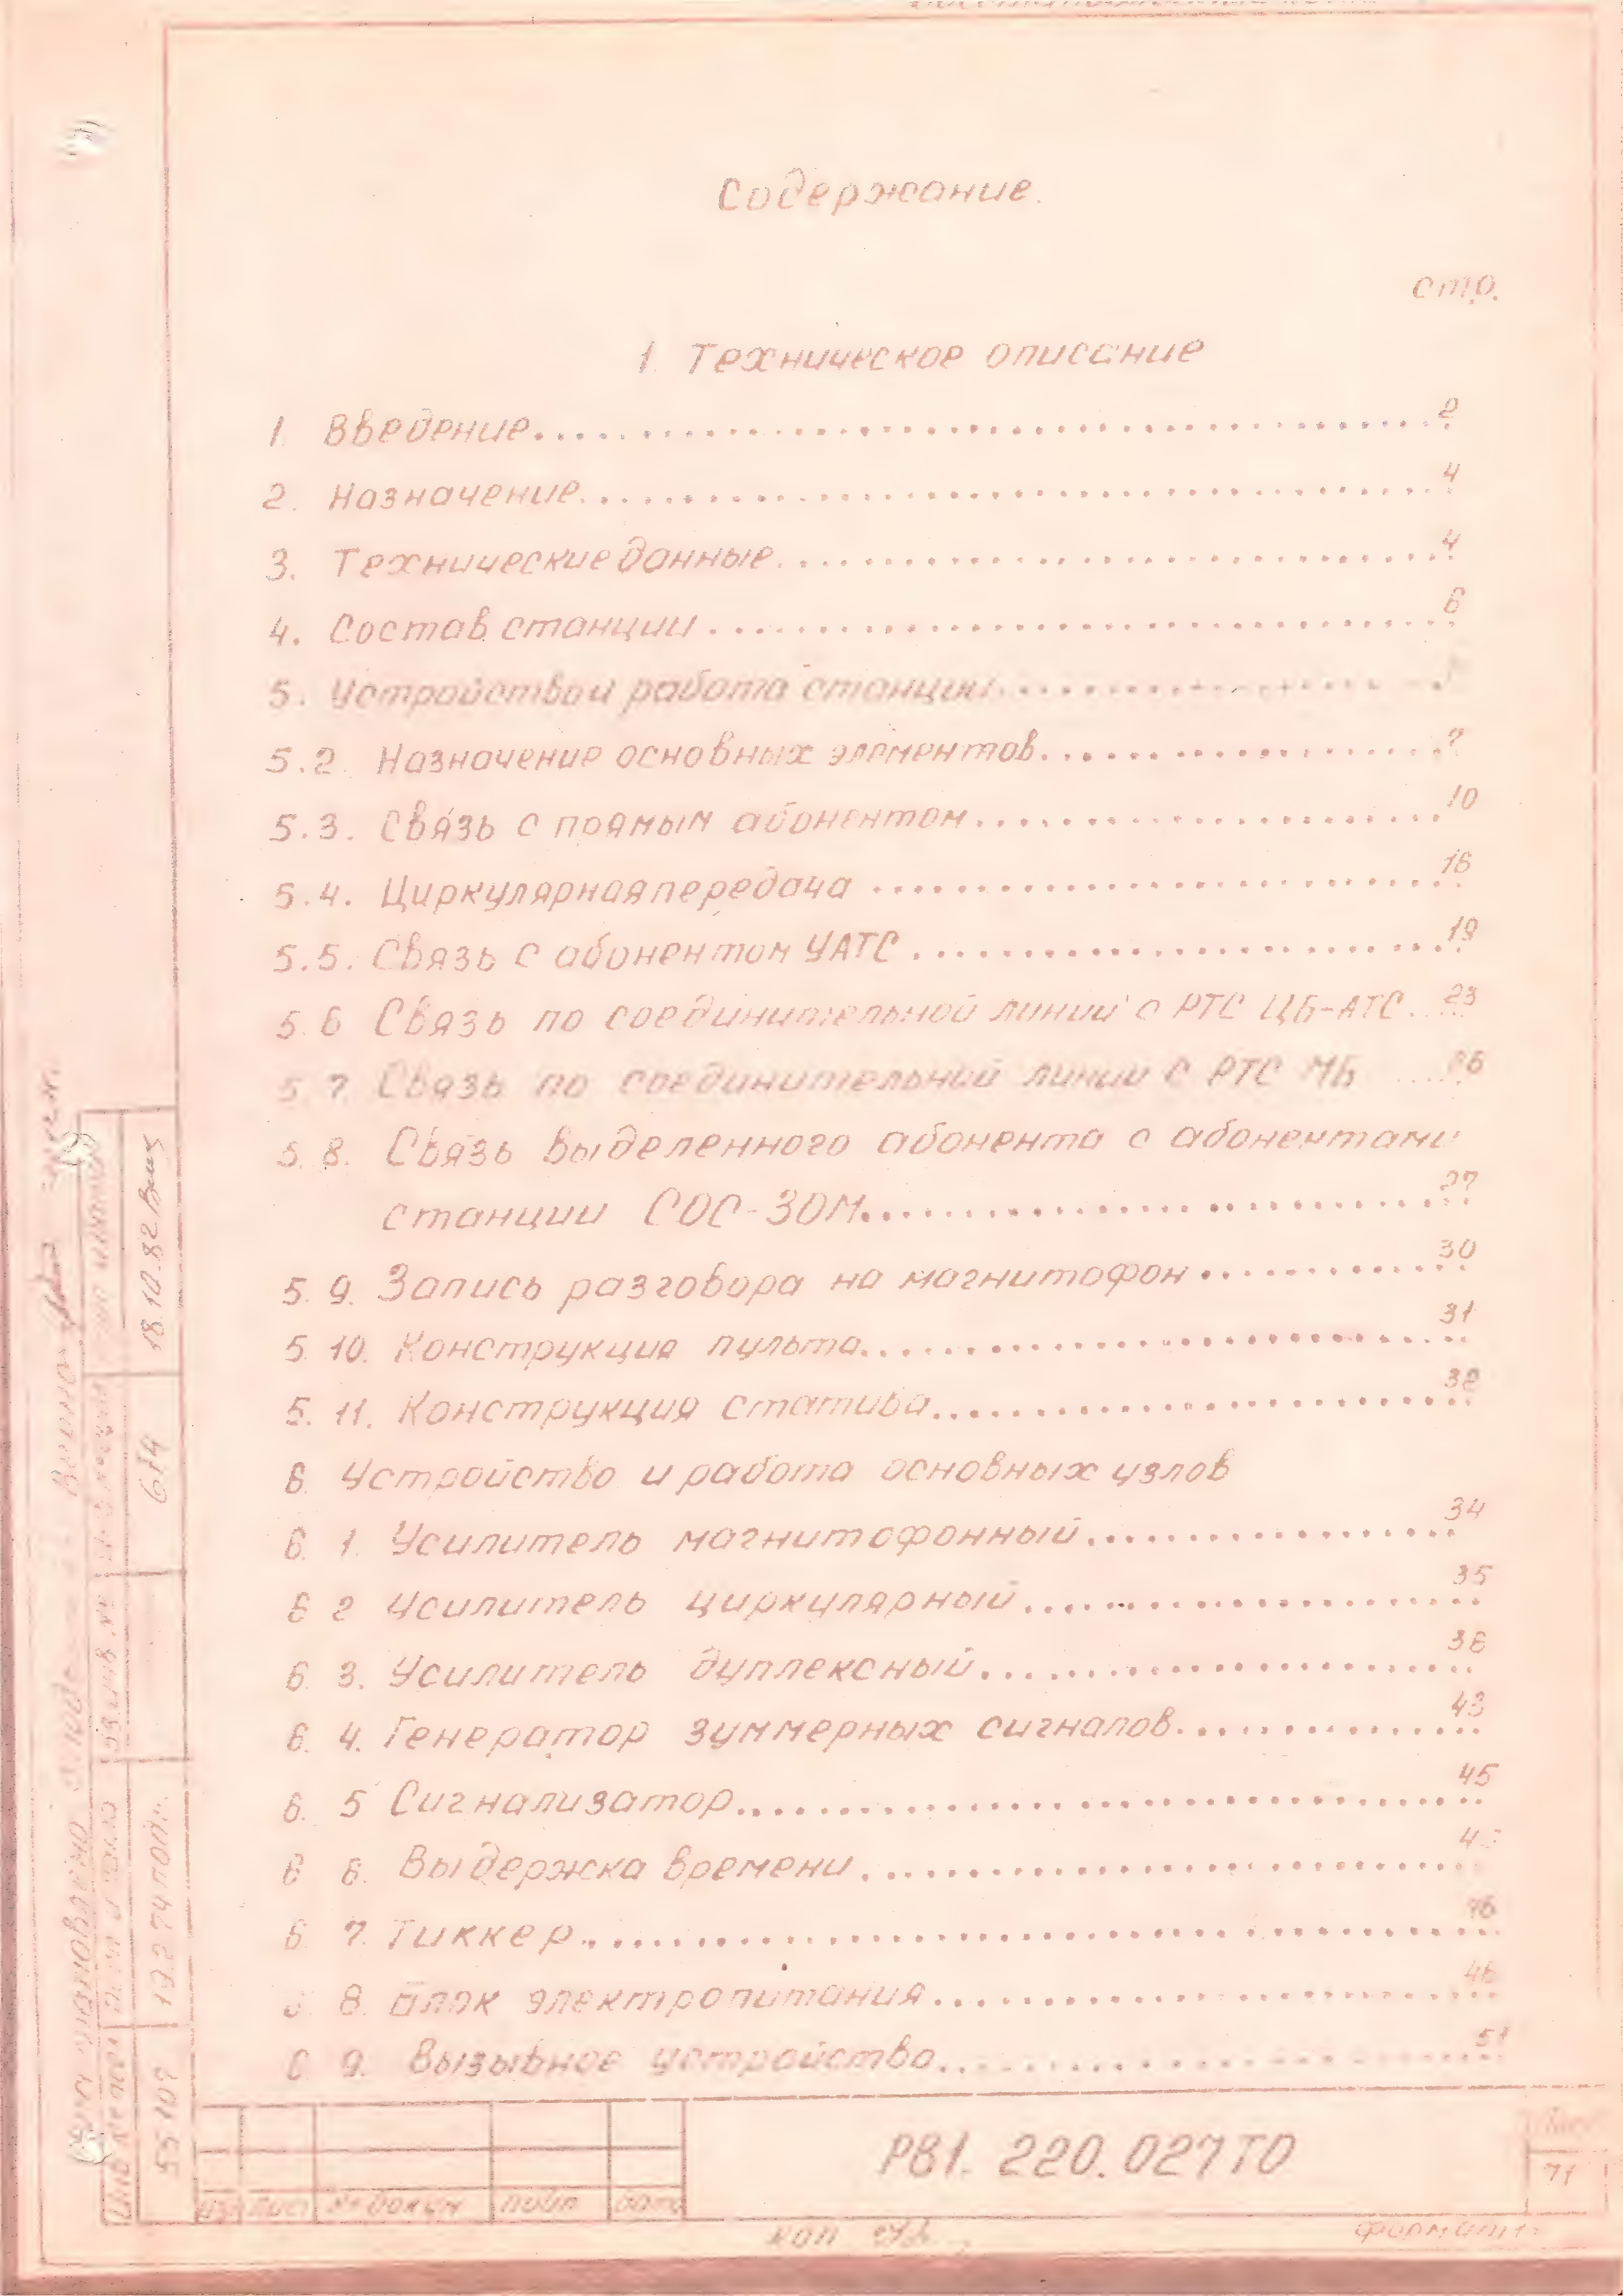 Содержание.
стр.
1. Техническое описание
1. Введение........ 2
2. Назначение........ 4
3. Технические данные........ 4
4. Состав станции........ 6
5. Устройство и работа станции........
5.2. Назначение основных элементов........ 7
5.3. Связь с прямым абонентом........ 10
5.4. Циркулярная передача........ 16
5.5. Связь с абонентом УАТС........ 19
5.6 Связь по соединительной линии с РТС ЦБ-АТС... 23
5.7. Связь по соединительной линии с РТС МБ .... 26
5.8. Связь выделенного абонента с абонентами
станции СОС-30М........ 27
5.9. Запись разговора на магнитофон........ 30
5.10. Конструкция пульта........ 31
5.11. Конструкция статива........ 32
6 Устройство и работа основных узлов
6.1. Усилитель магнитофонный........ 34
6 2 Усилитель циркулярный........ 35
6.3. Усилитель дуплексный........ 36
6.4. Генератор зуммерных сигналов........ 43
6.5 Сигнализатор........ 45
6 6. Выдержка времени........
6 7. Тиккер........ 46
8. Блок электропитания........ 48
6 9. Вызывное устройство........ 51
РВ1. 220. 027ТО
Лист
71
Изм Лист № докум подп Дата
коп
Формат
18.10.82
614
19.2.74
55107